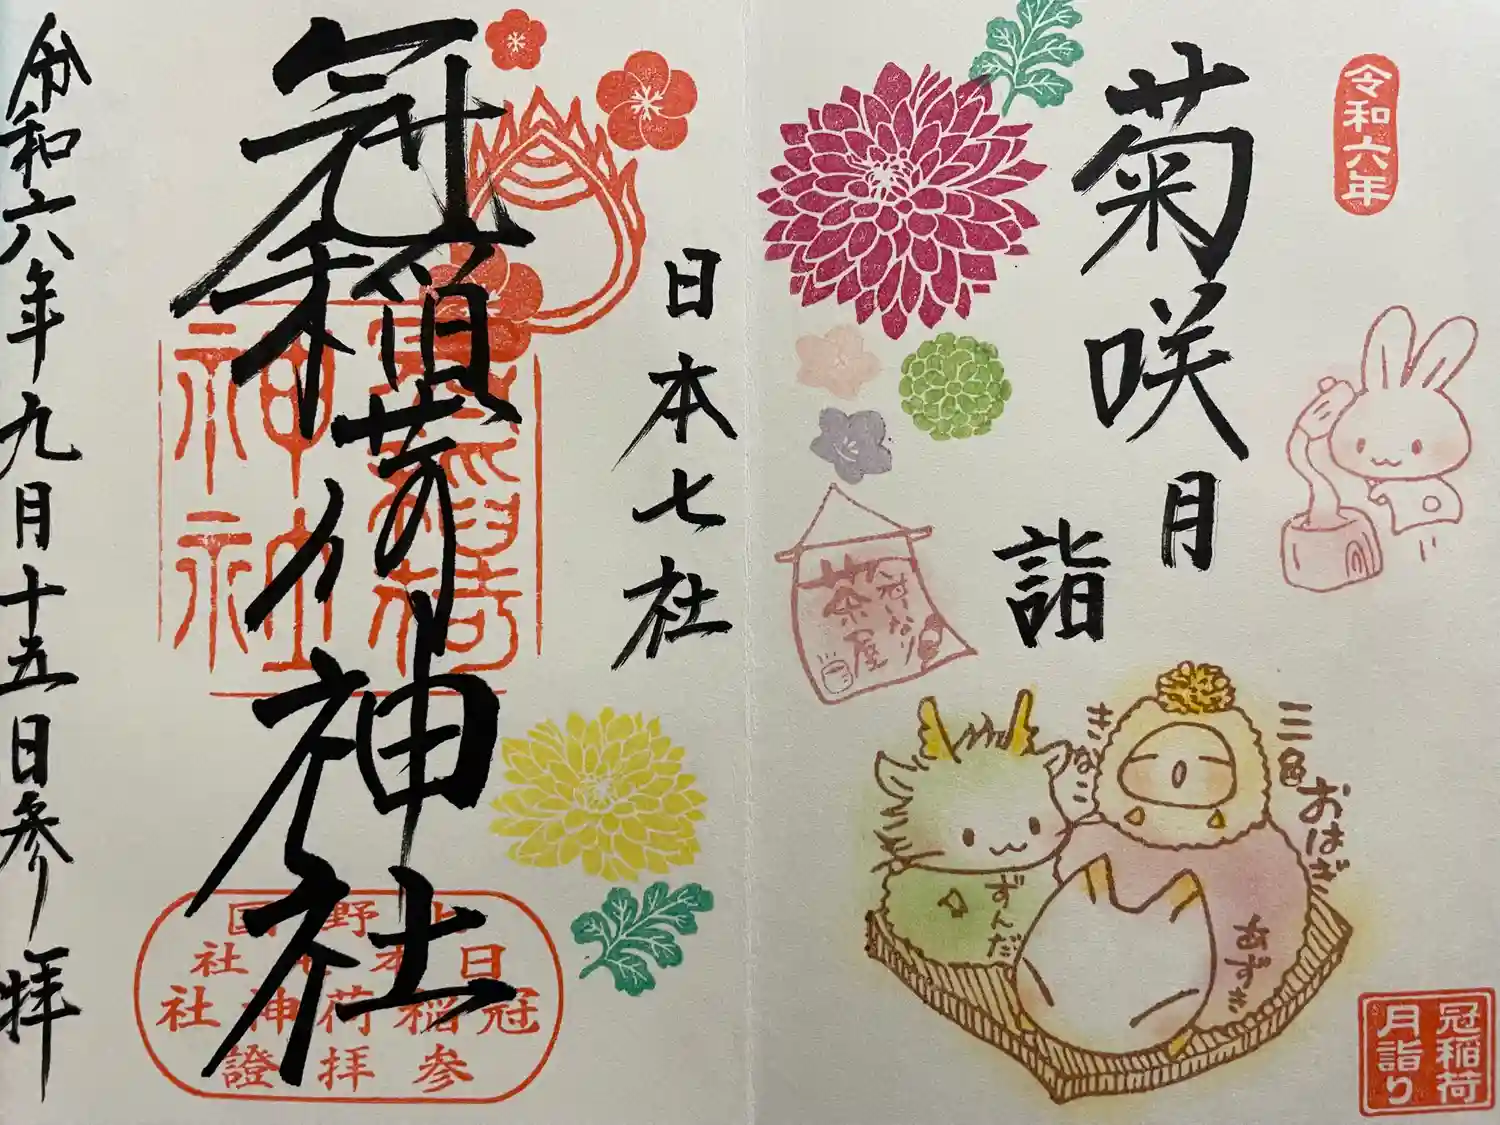 令和六年
菊咲月
詣
冠いなり
茶屋
三色おはぎ
きなこ
ずんだ
あずき
冠稲荷
月詣り
日本七社
冠稲荷神社
冠稲荷
神社
上野国
日本七社
冠稲荷神社
参拝證
令和六年九月十五日参拝